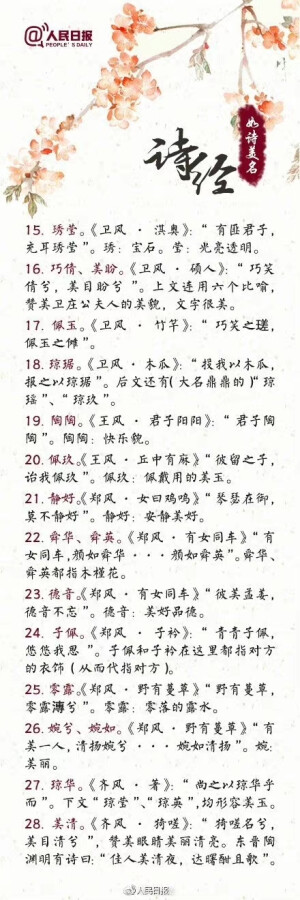 @人民日报
PEOPLE'S DAILY
如诗美名
诗经
15. 琇莹。《卫风·淇奥》：“有匪君子，
充耳琇莹”。琇：宝石。莹：光亮透明。
16. 巧倩、美盼。《卫风·硕人》：“巧笑
倩兮，美目盼兮”。上文连用六个比喻，
赞美卫庄公夫人的美貌，文字很美。
17. 佩玉。《卫风·竹竿》：“巧笑之瑳，
佩玉之傩”。
18. 琼琚。《卫风·木瓜》：“投我以木瓜，
报之以琼琚”。后文还有(大名鼎鼎的)“琼
瑶”、“琼玖”。
19. 陶陶。《王风·君子阳阳》：“君子陶
陶”。陶陶：快乐貌。
20. 佩玖。《王风·丘中有麻》“彼留之子，
诒我佩玖”。佩玖：佩戴用的美玉。
21. 静好。《郑风·女曰鸡鸣》“琴瑟在御，
莫不静好”。静好：安静美好。
22. 舜华、舜英。《郑风·有女同车》“有
女同车，颜如舜华···颜如舜英”。舜华、
舜英都指木槿花。
23. 德音。《郑风·有女同车》“彼美孟姜，
德音不忘”。德音：美好品德。
24. 子佩。《郑风·子衿》：“青青子佩，
悠悠我思”。子佩和子衿在这里都指对方
的衣饰（从而代指对方）。
25. 零露。《郑风·野有蔓草》“野有蔓草，
零露漙兮”。零露：零落的露水。
26. 婉兮、婉如。《郑风·野有蔓草》“有
美一人，清扬婉兮···婉如清扬”。婉：
美丽。
27. 琼华。《齐风·著》：“尚之以琼华乎
而”。下文“琼莹”、“琼英”，均形容美玉。
28. 美清。《齐风·猗嗟》：“猗嗟名兮，
美目清兮”，赞美眼睛美丽清亮。东晋陶
渊明有诗曰：“佳人美清夜，达曙酣且歌”。
@人民日报